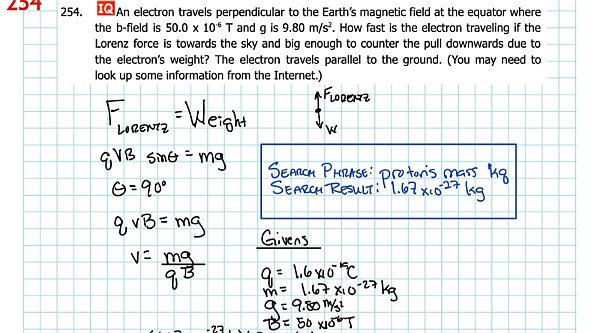 254
254. IQ An electron travels perpendicular to the Earth's magnetic field at the equator where
the b-field is 50.0 x 10⁻⁶ T and g is 9.80 m/s². How fast is the electron traveling if the
Lorenz force is towards the sky and big enough to counter the pull downwards due to
the electron's weight? The electron travels parallel to the ground. (You may need to
look up some information from the Internet.)
F LORENTZ = Weight
FLORENTZ
W
qVB sinθ = mg
θ = 90°
q v B = mg
v = mg / qB
SEARCH PHRASE: proton's mass kg
SEARCH RESULT: 1.67 x10⁻²⁷ kg
Givens
q = 1.6 x10⁻¹⁹ C
m = 1.67 x10⁻²⁷ kg
g = 9.80 m/s²
B = 50 x10⁻⁶ T